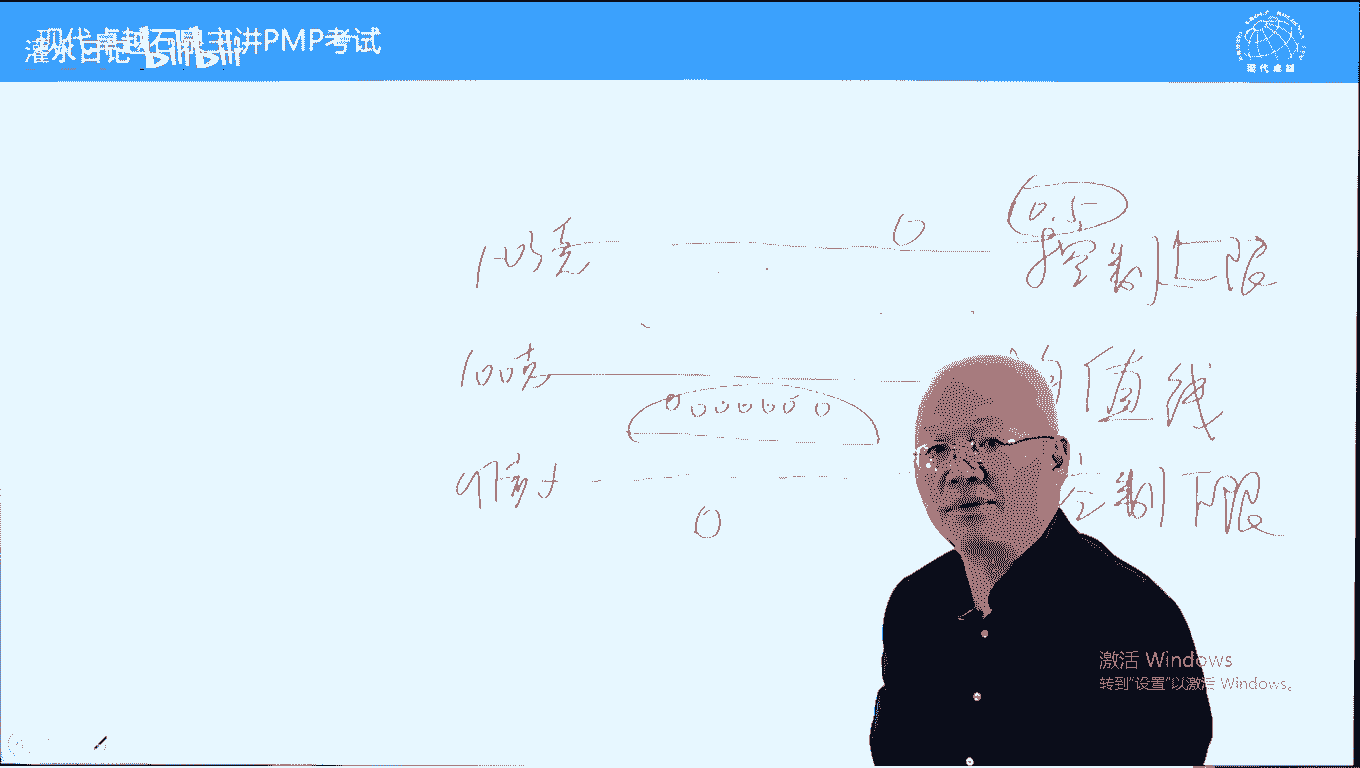 现代卓越石泉主讲PMP考试
灌水日记 bilibili
现代卓越
0.5
103克
控制上限
100克
值线
97克
控制下限
激活 Windows
转到“设置”以激活 Windows。